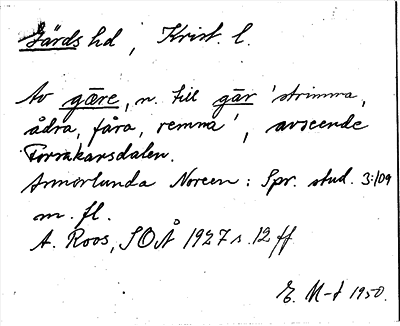 Gärds hd, Krist. l.
Av gære, n. till går 'strimma,
ådra, fåra, remma', avseende
Forsakarsdalen.
Annorlunda Noreen: Spr. stud. 3:109
m. fl.
A. Roos, SOÅ 1927 s. 12 ff
E. M-t 1950.